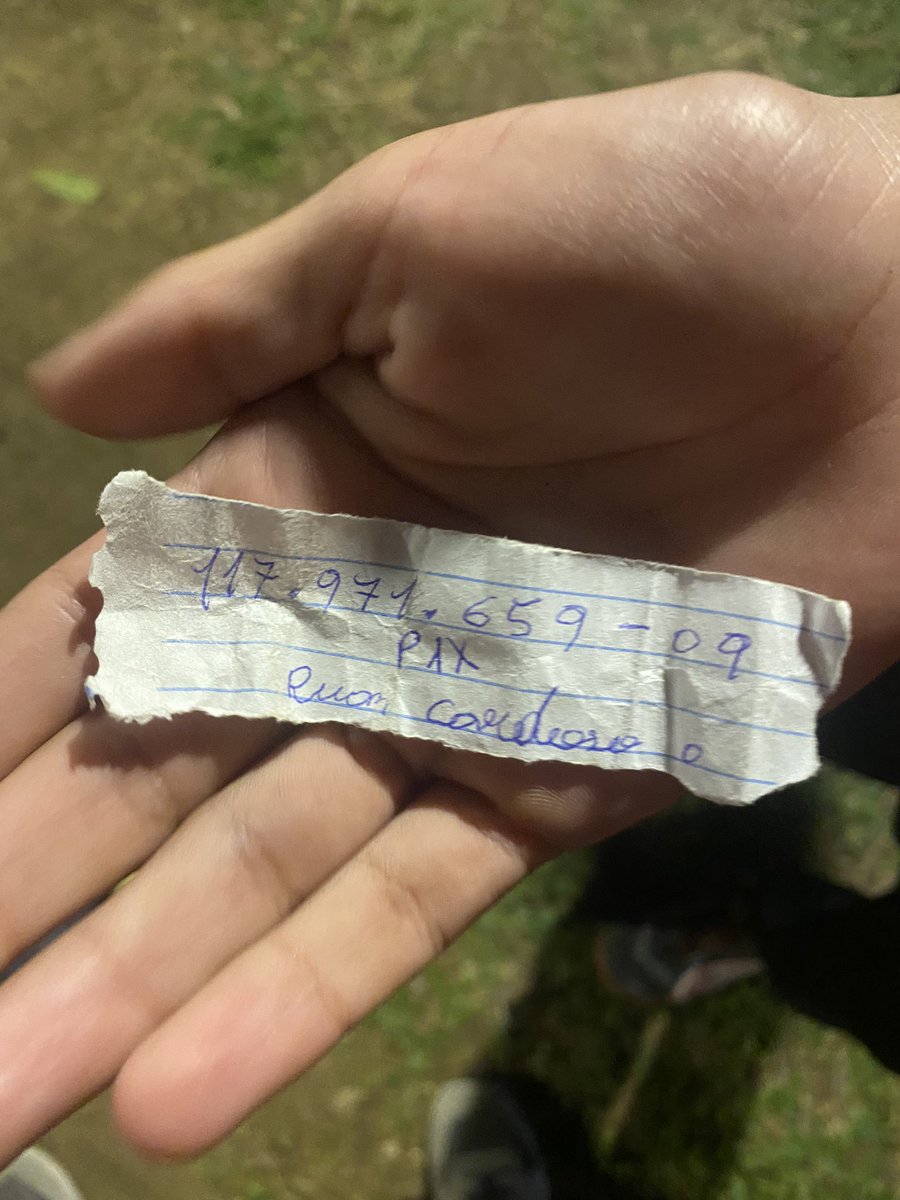 117.971.659-09
PIX
Ruan Cardoso